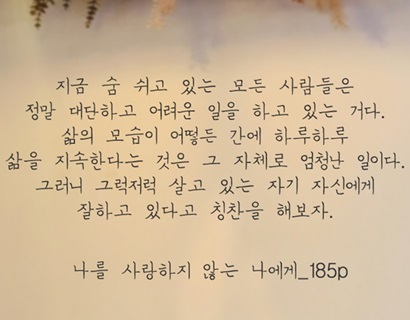 지금 숨 쉬고 있는 모든 사람들은
정말 대단하고 어려운 일을 하고 있는 거다.
삶의 모습이 어떻든 간에 하루하루
삶을 지속한다는 것은 그 자체로 엄청난 일이다.
그러니 그럭저럭 살고 있는 자기 자신에게
잘하고 있다고 칭찬을 해보자.
나를 사랑하지 않는 나에게_185p